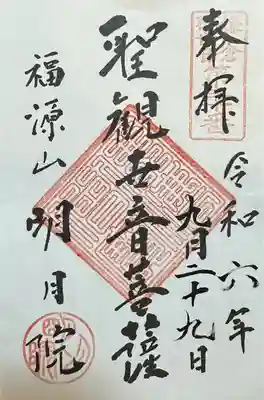 奉拝
令和六年
九月二十九日
聖観世音菩薩
福源山
明月院